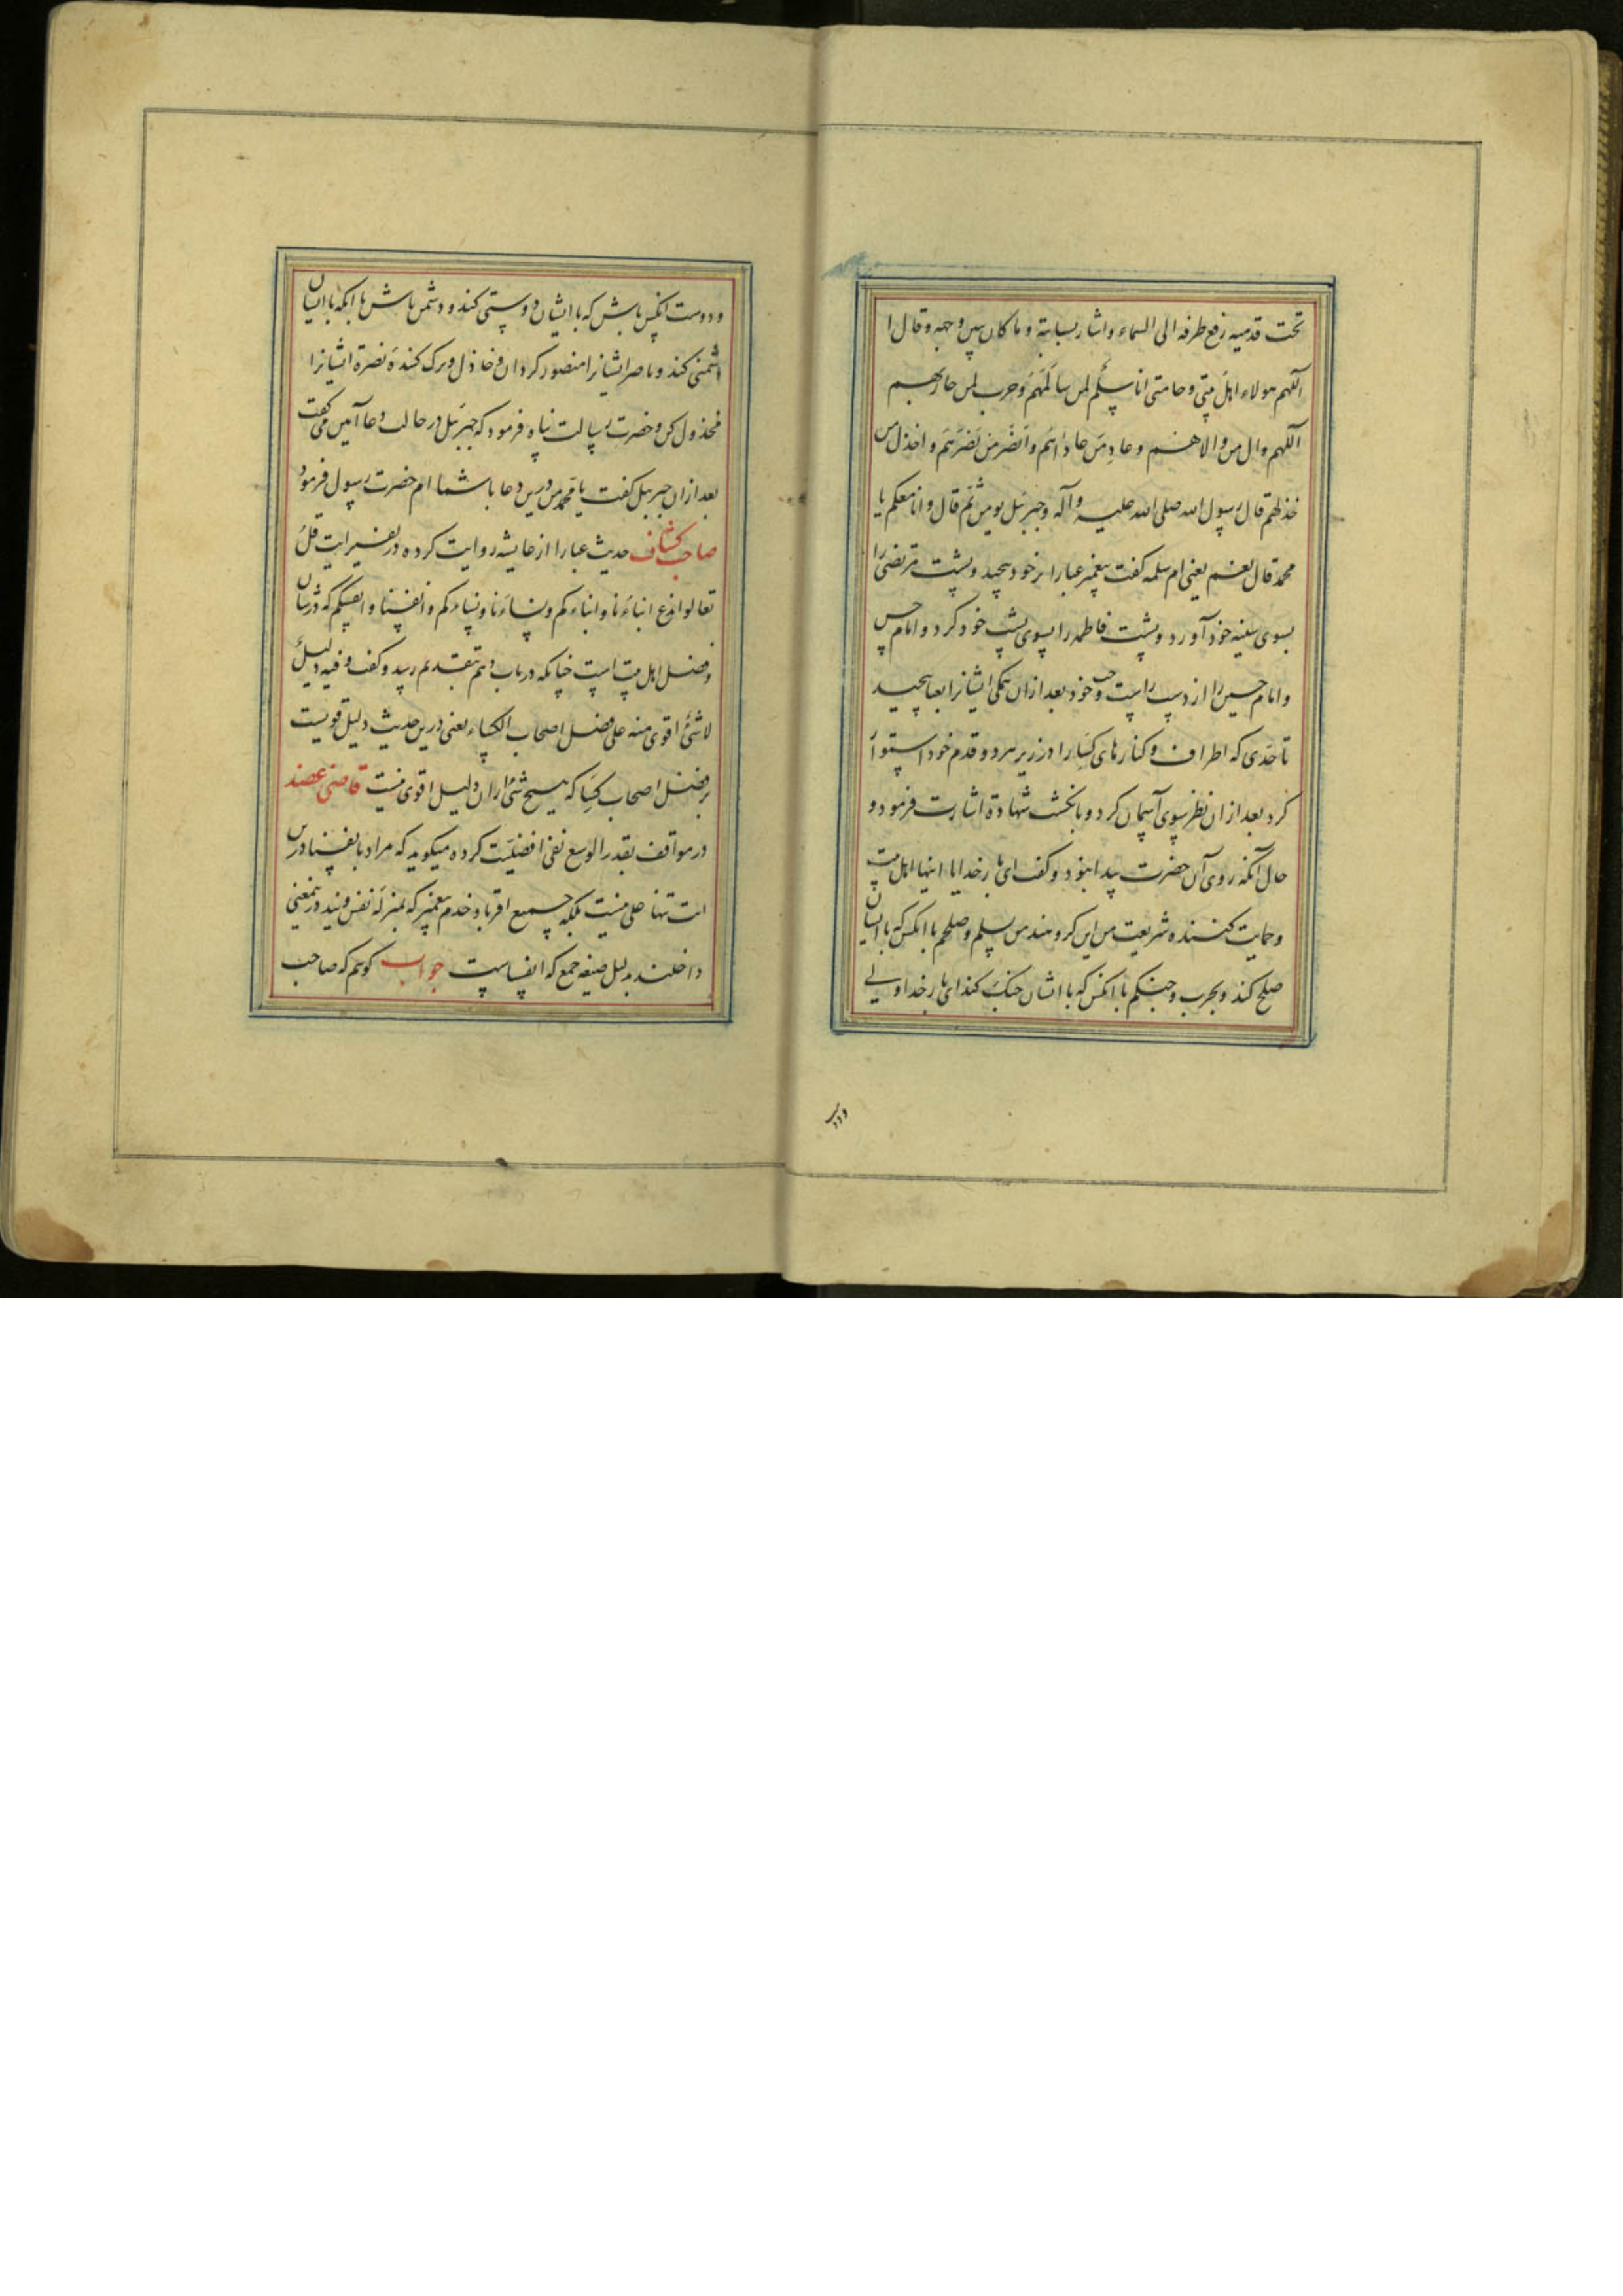 تحت قدمیه رفع طرفه الی السماء و اشار بسبابته و ما کان بین وجهه و قال ا
اللهم هولاء اهل بیتی و حامتی انا سلم لمن سالمهم و حرب لمن حاربهم
اللهم وال من والاهم و عاد من عاداهم وانصر من نصرهم و اخذل من
خذلهم قال رسول الله صلی الله علیه وآله و جبرئیل یومن ثم قال وانا معکم یا
محمد قال نعم یعنی ام سلمه گفت پیغمبر عبا را بر خود پیچید و پشت مرتضی را
بسوی سینه خود آورد و پشت فاطمه را بسوی پشت خود کرد و امام حسن
و امام حسین را از دست راست و چپ خود بعد ازان همکی ایشانرا بعبا پیچید
تا حدی که اطراف و کنارهای کسا را در زیر هر دو قدم خود استوار
کرد بعد ازان نظر بسوی آسمان کرد و بانکشت شهادة اشارت فرمود و
حال آنکه روی آن حضرت پیدا نبود و کفت ای بار خدایا اینها اهل بیت
و حمایت کننده شریعت من این کروهند من سلم و صلحم با انکس که با ایشان
صلح کند و بحرب و جنکم با انکس که با ایشان جنک کند ای بار خدا والی
ودو
و دوست انکس باش که با ایشان دوستی کند و دشمن باش با انکه با ایشان
دشمنی کند و ناصر ایشانرا منصور کردان و خاذل و ترک کنندهٔ نصرة ایشانرا
مخذول کن و حضرت رسالت پناه فرمود که جبرئیل در حالت دعا آمین می کفت
بعد ازان جبرئیل کفت یا محمد من درین دعا با شما ام حضرت رسول فرمود
صاحب کشاف حدیث عبا را از عایشه روایت کرده در تفسیر ایت قل
تعالوا ندع ابناءنا و ابناءکم و نساءنا و نساءکم و انفسنا و انفسکم که در شان
و فضل اهل بیت است چنانکه در باب دهم بتقدیم رسید و کفت و فیه دلیل
لا شئ اقوی منه علی فضل اصحاب الکساء یعنی درین حدیث دلیل قویست
بر فضل اصحاب کسا که هیچ شئ ازان دلیل اقوی نیست قاضی عضد
در مواقف بقدر الوسع نفی افضلیت کرده میکوید که مراد بانفسنا درین
ایت تنها علی نیست بلکه جمیع اقربا و خدم پیغمبر که بمنزله نفس ویند در ینمعنی
داخلند بدلیل صیغه جمع که انفساست جواب کوییم که صاحب